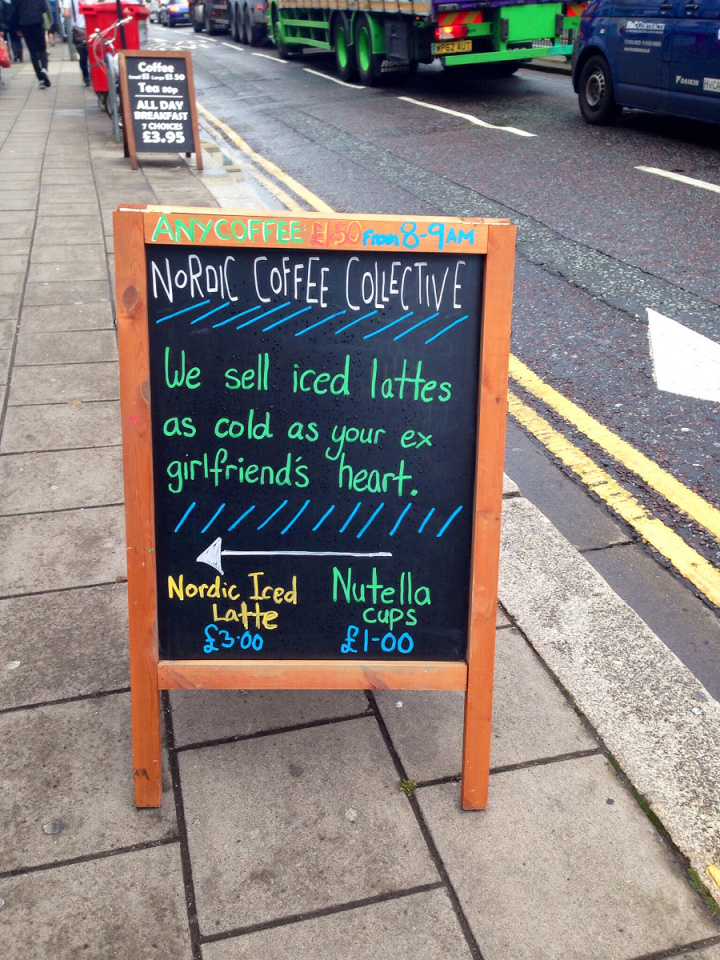 ANY COFFEE £1.50 From 8-9AM
NORDIC COFFEE COLLECTIVE
We sell iced lattes
as cold as your ex
girlfriend's heart.
Nordic Iced
Latte
£3.00
Nutella
cups
£1-00
Coffee
Small £1 Large £1.50
Tea 80p
ALL DAY
BREAKFAST
7 CHOICES
£3.95
DAIKIN